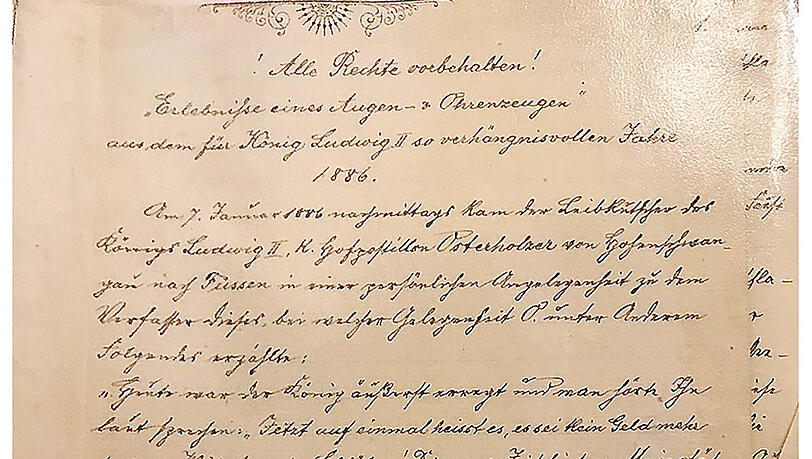 ! Alle Rechte vorbehalten!
„Erlebnisse eines Augen- & Ohrenzeugen"
aus dem für König Ludwig II so verhängnisvollen Jahre
1886.
Am 7. Januar 1886 nachmittags kam der Leibkutscher des
Königs Ludwig II, K. Hofpostillon Osterholzer von Hohenschwan-
gau nach Füssen in einer persönlichen Angelegenheit zu dem
Verfasser dieses, bei welcher Gelegenheit O. unter Anderem
Folgendes erzählte:
„Heute war der König äußerst erregt und man hörte Ihn
laut sprechen: „Jetzt auf einmal heisst es, es sei kein Geld mehr